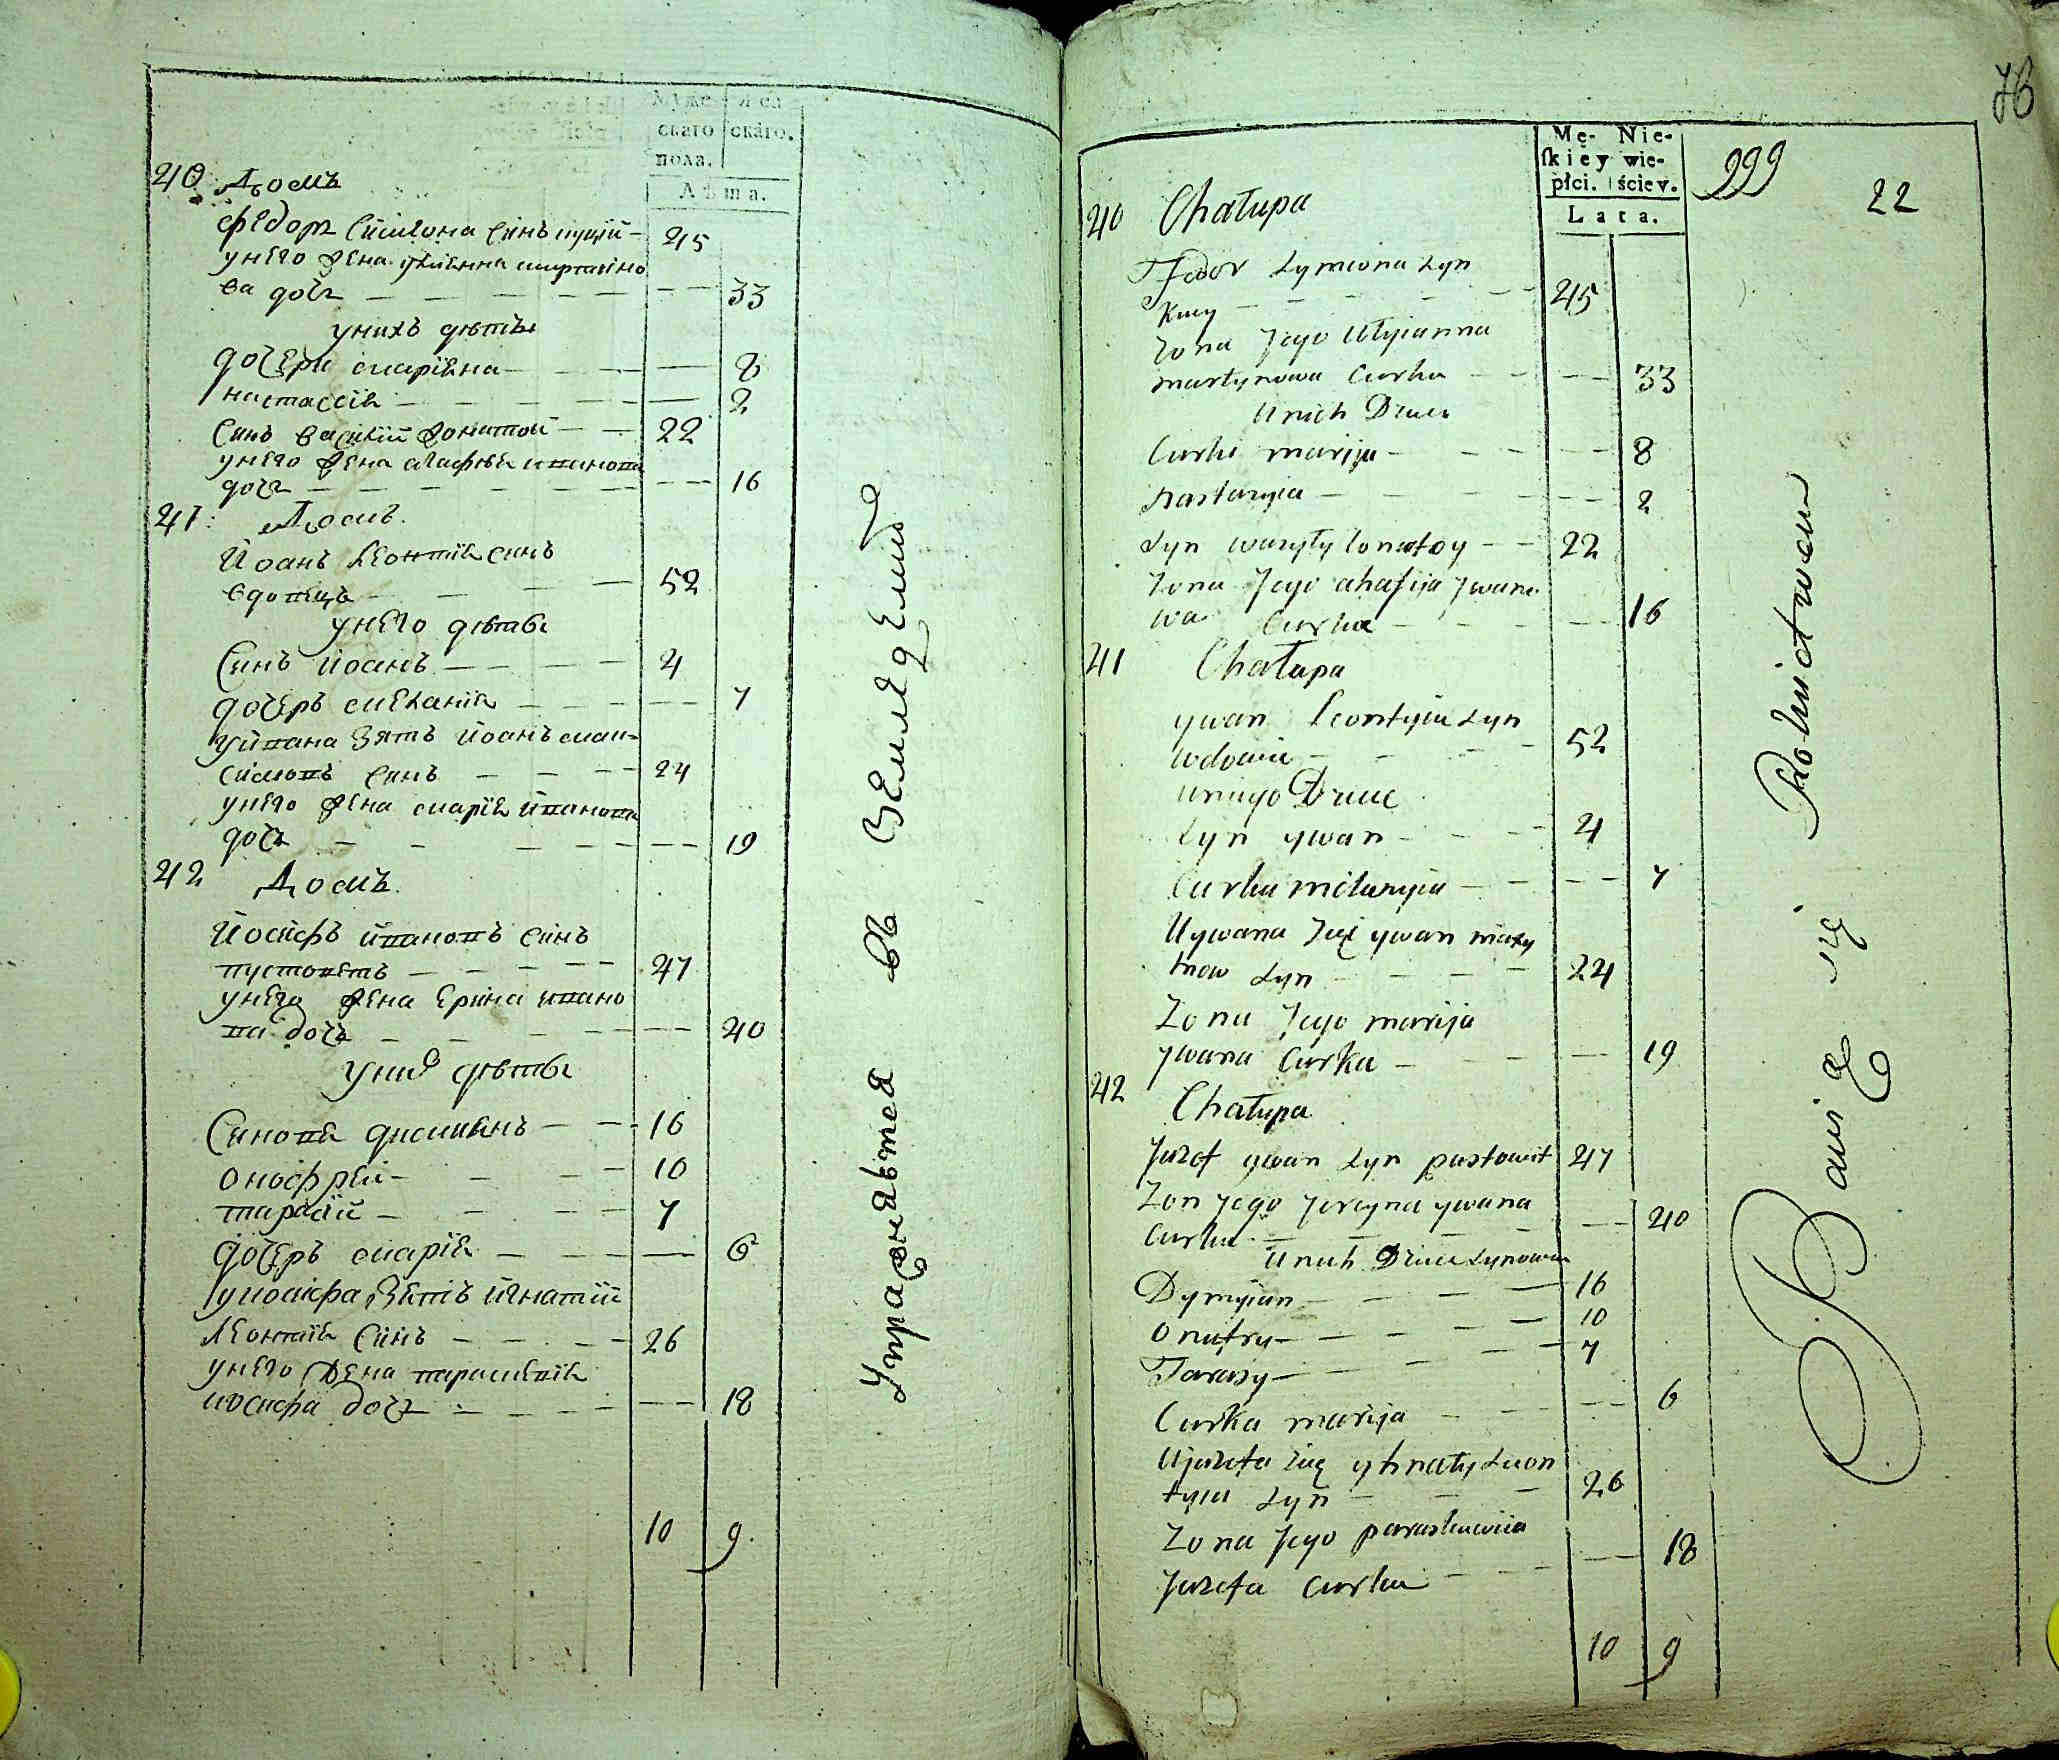 Муже- ска-
скаго скаго.
пола.
Лѣта.
40 Домъ
Федоръ Симиона синъ куцій - 45
унего жена уліенна мартино
ва дочъ - - 33
унихъ дѣтѣ
дочери мариена - - 8
настассія - - 2
Синъ василій жонатой - - 22
унего жена агафія иванова
дочъ - - 16
41 Домъ
Йоанъ леонтія синъ
вдовецъ - - 52
унего дѣти
Синъ йоанъ - - 4
дочеръ меланія - - 7
уйвана зятъ йоанъ мак-
симовъ синъ - - 24
унего жена марія йванова
дочъ - - 19
42 Домъ
Йосифъ йвановъ синъ
пустоветъ - - 47
унего жена ерина ивано
ва дочъ - - 40
уних дѣти
Синовя дисмиянъ - - 16
онофрей - - 10
тарасій - - 7
дочеръ марія - - 6
уйосифа зятъ йгнатій
леонтія синъ - - 26
унего жена парасковія
иосифа дочъ - - 18
10 9
Упражняется въ земледелии
76
Mę- Nie-
ſkiey wie-
płci. ściey.
Lata.
999
22
40 Chałupa
Fedor Symiona Syn
Kucy - - 45
Zona Jego Ulyianna
martynowa Curka - - 33
Unich Dzieci
Curki marija - - 8
nastazyia - - 2
Syn wasyły zonatoy - - 22
Zona Jego ahafija Jwano
wa Curka - - 16
41 Chałupa
ywan Leontyia Syn
wdowiec - - 52
uniego Dziece
Syn ywan - - 4
Curka milanyia - - 7
Uywana Zięć ywan maxy
mow Syn - - 24
Zona Jego marija
ywana Curka - - 19
42 Chałupa
Juzef ywan Syn pustowit 47
Zon Jego Jereyna ywana
Curka - - 40
Unich Dzieci Synowie
Dymyian - - 16
Onufry - - 10
Tarasy - - 7
Curka marija - - 6
Ujuzefa Zięć yhnaty Leon
tyia Syn - - 26
Zona Jego paraskiewiia
Juzefa Curka - - 18
10 9
Bawią się Rolnictwem